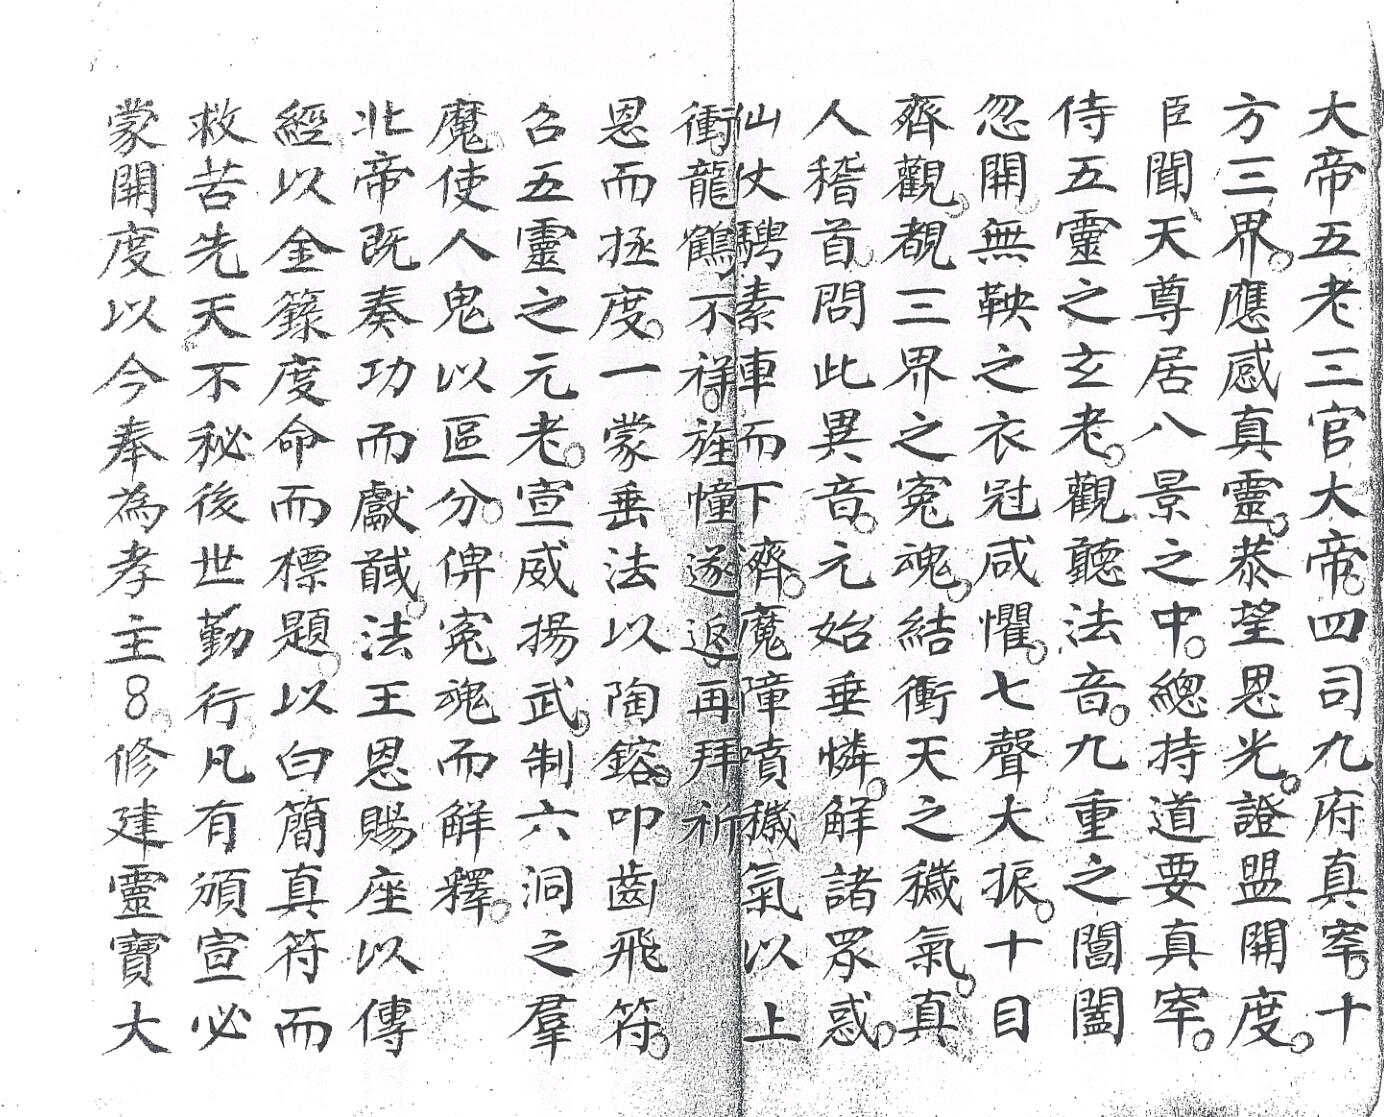 大帝五老三官大帝。四司九府真宰。十
方三界。應感真靈。恭望恩光。證盟開度。
臣聞天尊居八景之中。總持道要真宰。
侍五靈之玄老。觀聽法音。九重之閶闔
忽開無鞅之衣冠咸懼。七聲大振。十目
齊觀。覩三界之冤魂。結衝天之穢氣。真
人稽首。問此異音。元始垂憐。解諸眾惑。
仙仗騁素車而下濟。魔障噴穢氣以上
衝。龍鶴不祥。旌幢遂返。再拜祈
恩而拯度。一蒙垂法以陶鎔。叩齒飛符。
召五靈之元老。宣威揚武。制六洞之羣
魔。使人鬼以區分。俾冤魂而解釋。
北帝既奏功而獻馘。法王恩賜座以傳
經以金籙度命而標題。以白簡真符而
救苦先天不秘後世勤行凡有頒宣必
蒙開度以今奉為孝主8。修建靈寶大